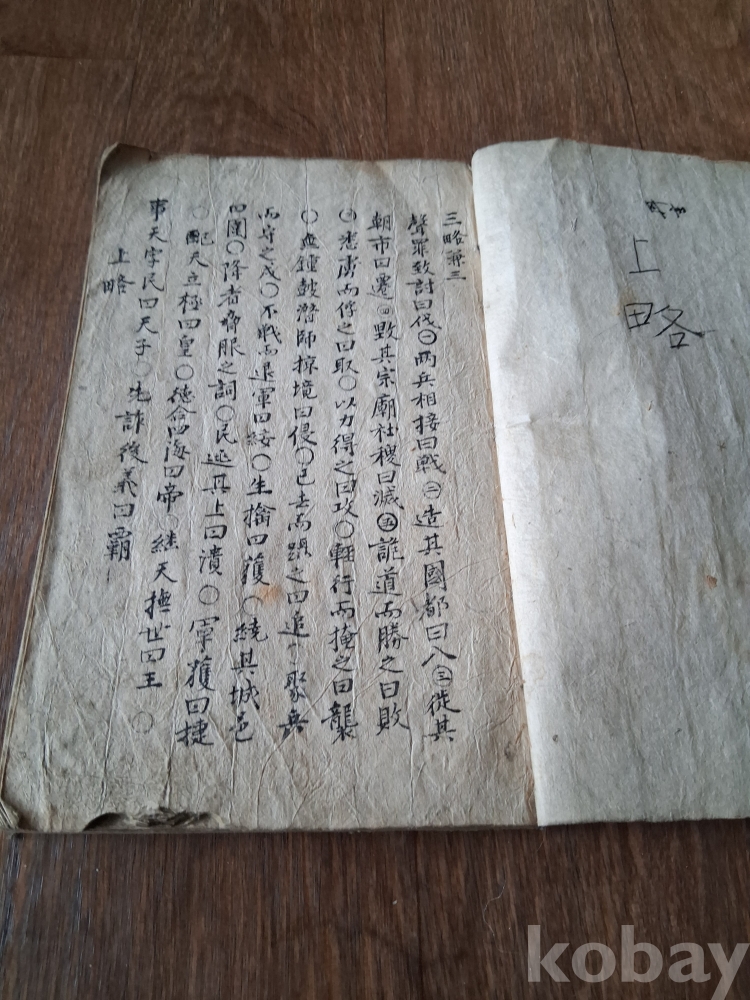 上
略
三略等三
聲罪致討曰伐㊀兩兵相接曰戰㊁造其國都曰入㊂徙其
朝市曰遷㊃毀其宗廟社稷曰滅㊄詭道而勝之曰敗
○悉虜而俘之曰取○以力得之曰攻○輕行而掩之曰襲
○無鍾鼓潛師掠境曰侵○已去而躡之曰追○聚兵
而守之戍○不戰而退軍曰綏○生擒曰獲○繞其城邑
曰圍○降者脅服之詞○民逃其上曰潰○軍獲曰捷
○配天立極曰皇○德合四海曰帝○繼天撫世曰王○
事天字民曰天子○先詐後義曰霸
上略
kobay